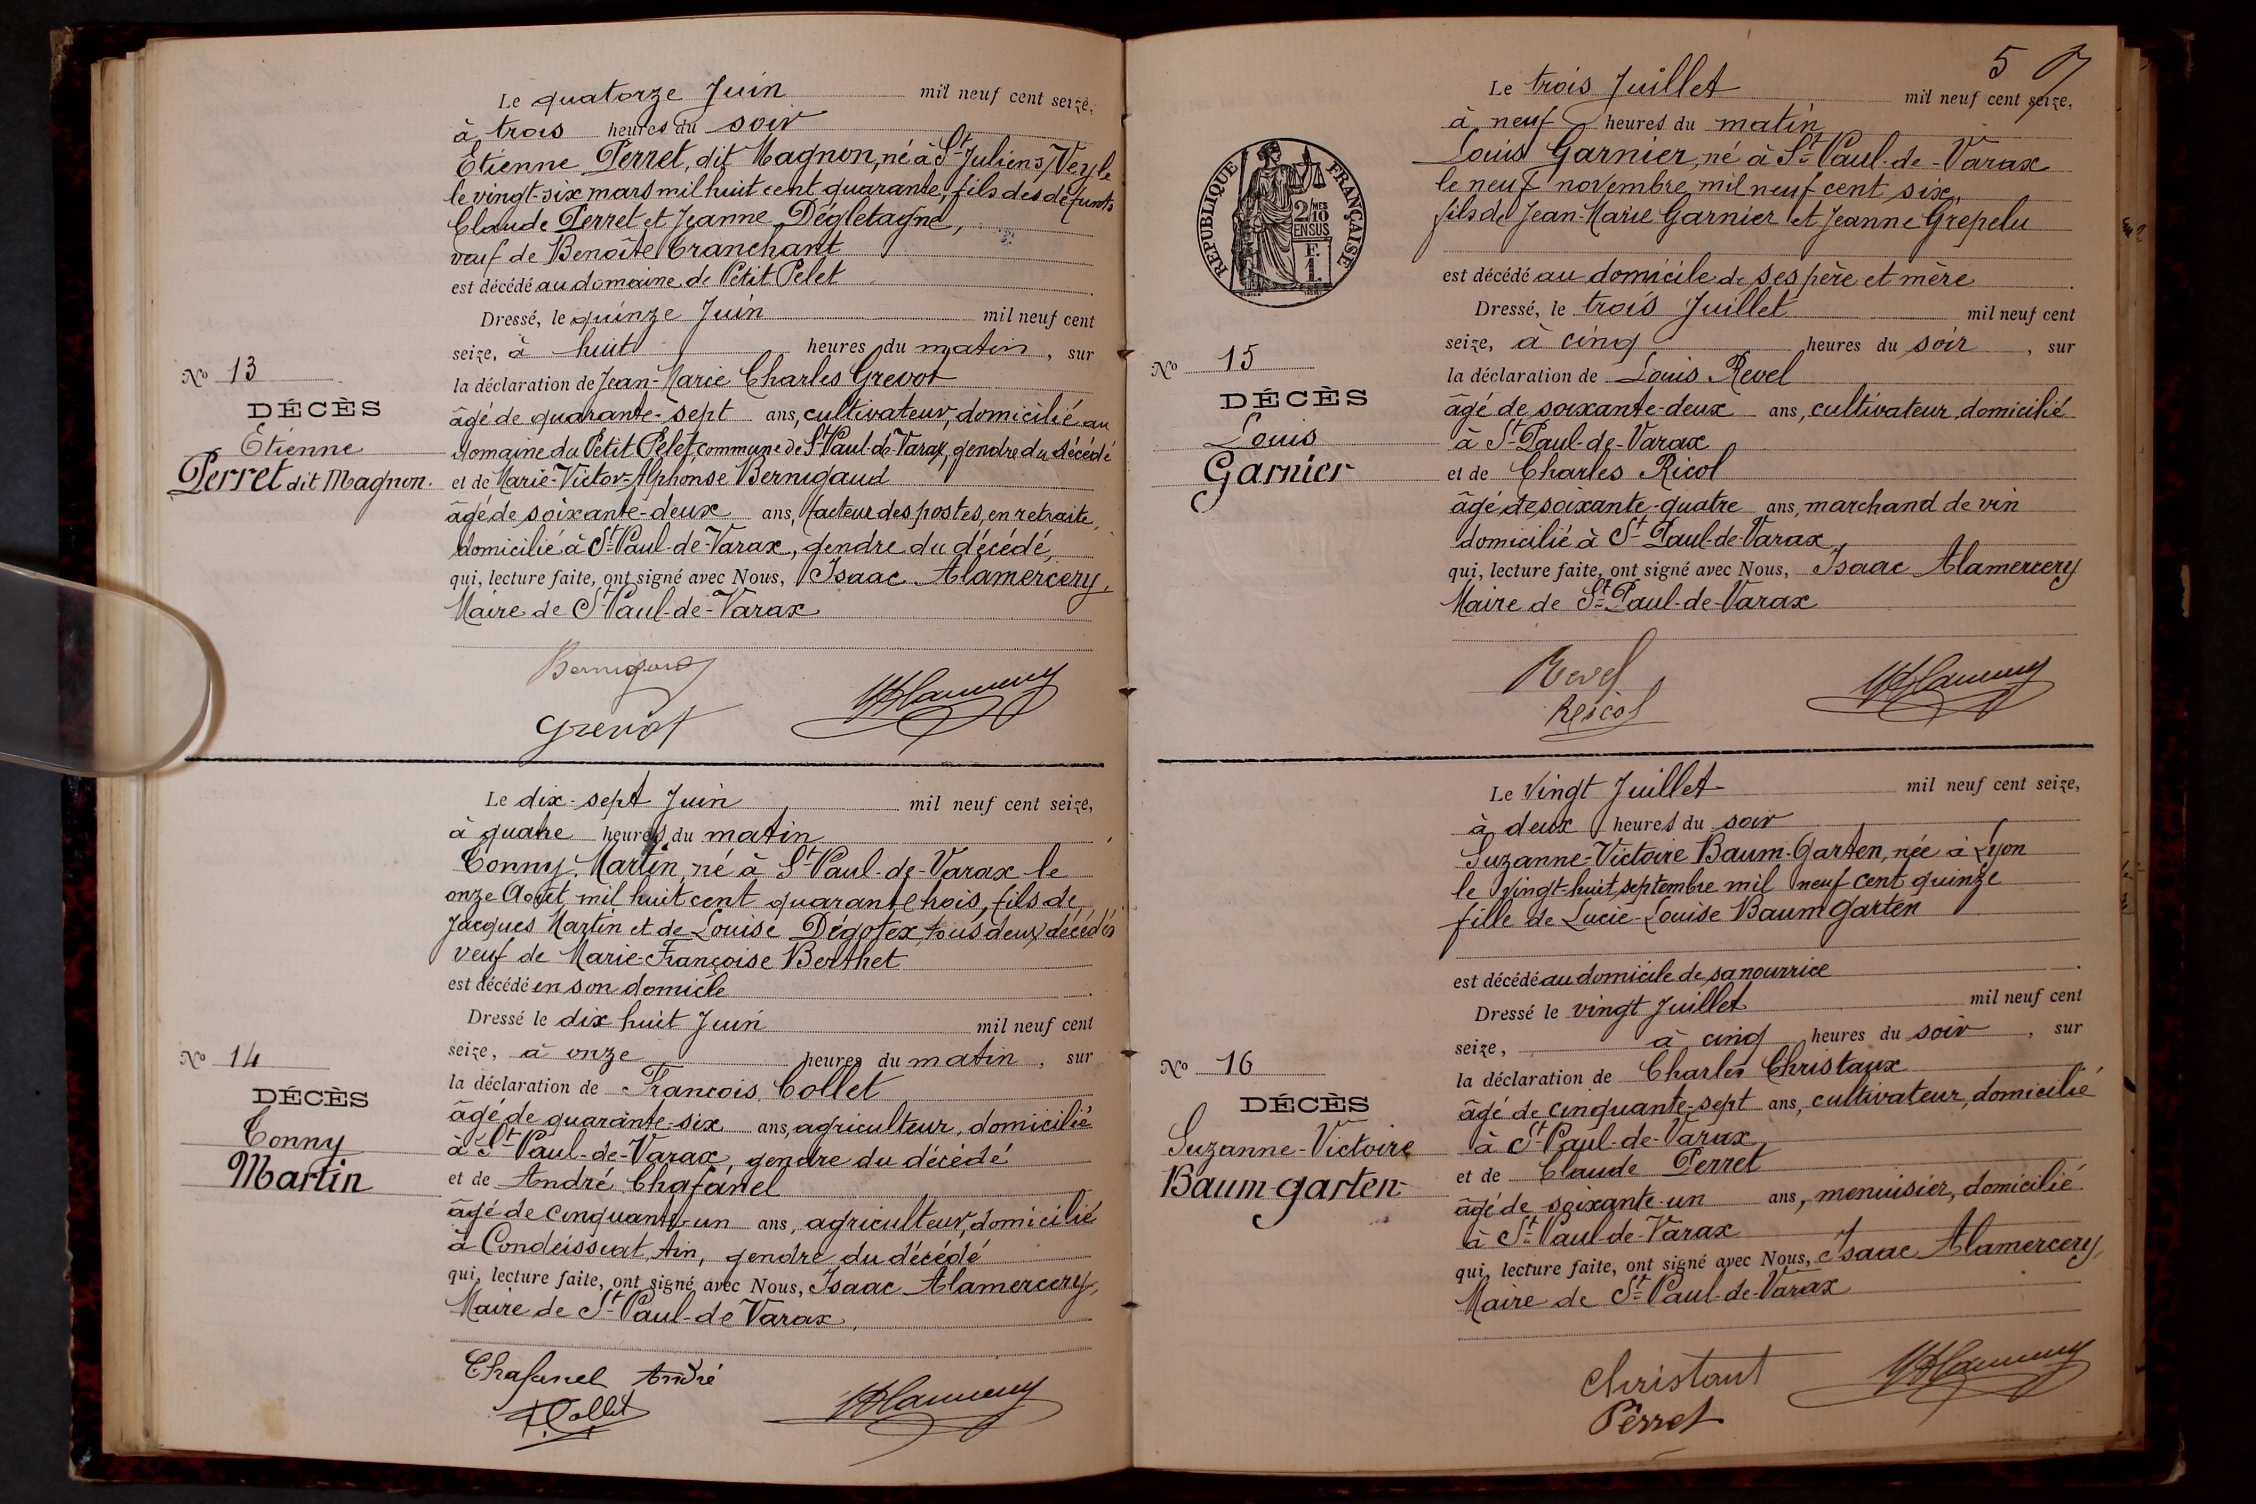 Le quatorze Juin mil neuf cent seize,
à trois heures du soir
Etienne Perret, dit Magnon, né à St Julien s/ Veyle
le vingt-six mars mil huit cent quarante, fils des défunts
Claude Perret et Jeanne Dégletagne,
veuf de Benoîte Tranchant
est décédé au domaine de Petit Pelet
Dressé, le quinze Juin mil neuf cent
seize, à huit heures du matin, sur
No 13
la déclaration de Jean-Marie Charles Grevot
DÉCÈS
âgé de quarante-sept ans, cultivateur, domicilié au
Etienne
domaine du Petit Pelet, commune de St Paul-de-Varax, gendre du décédé
Perret dit Magnon.
et de Marie-Victor-Alphonse Bernigaud
âgé de soixante-deux ans, facteur des postes, en retraite,
domicilié à St Paul-de-Varax, gendre du décédé,
qui, lecture faite, ont signé avec Nous, Isaac Alamercery,
Maire de St Paul-de-Varax
Bernigaud
Grevot
Le dix-sept Juin mil neuf cent seize,
à quatre heures du matin
Tonny Martin, né à St Paul-de-Varax le
onze Août mil huit cent quarante trois, fils de
Jacques Martin et de Louise Dégotex, tous deux décédés
veuf de Marie-Françoise Berthet
est décédé en son domicile
Dressé le dix huit Juin mil neuf cent
seize, à onze heures du matin, sur
No 14
la déclaration de François Collet
DÉCÈS
âgé de quarante-six ans, agriculteur, domicilié
Tonny
à St Paul-de-Varax, gendre du décédé
Martin
et de André Chafanel
âgé de cinquante-un ans, agriculteur, domicilié
à Condeissiat, Ain, gendre du décédé
qui, lecture faite, ont signé avec Nous, Isaac Alamercery,
Maire de St Paul-de Varax,
Chafanel André
F. Collet
5
Le trois Juillet mil neuf cent seize,
à neuf heures du matin
Louis Garnier, né à St Paul-de-Varax
le neuf novembre mil neuf cent six,
fils de Jean-Marie Garnier et Jeanne Grepelu
REPUBLIQUE FRANÇAISE
2/10 MES
EN SUS
F.
1
est décédé au domicile de ses père et mère
Dressé, le trois Juillet mil neuf cent
seize, à cinq heures du soir, sur
No 15
la déclaration de Louis Revel
DÉCÈS
âgé de soixante-deux ans, cultivateur, domicilié
Louis
à St Paul-de-Varax
Garnier
et de Charles Ricol
âgé de soixante-quatre ans, marchand de vin
domicilié à St Paul-de-Varax,
qui, lecture faite, ont signé avec Nous, Isaac Alamercery
Maire de St Paul-de-Varax
Revel
Ricol
Le vingt Juillet mil neuf cent seize,
à deux heures du soir
Suzanne-Victoire Baum-Garten, née à Lyon
le vingt-huit septembre mil neuf cent quinze
fille de Lucie-Louise Baumgarten
est décédé au domicile de sa nourrice
Dressé le vingt Juillet mil neuf cent
seize, à cinq heures du soir, sur
No 16
la déclaration de Charles Christaux
DÉCÈS
âgé de cinquante-sept ans, cultivateur, domicilié
Suzanne-Victoire
à St Paul-de-Varax
Baum-garten
et de Claude Perret
âgé de soixante-un ans, menuisier, domicilié
à St Paul-de-Varax
qui, lecture faite, ont signé avec Nous, Isaac Alamercery,
Maire de St Paul-de-Varax
Christaut
Perret